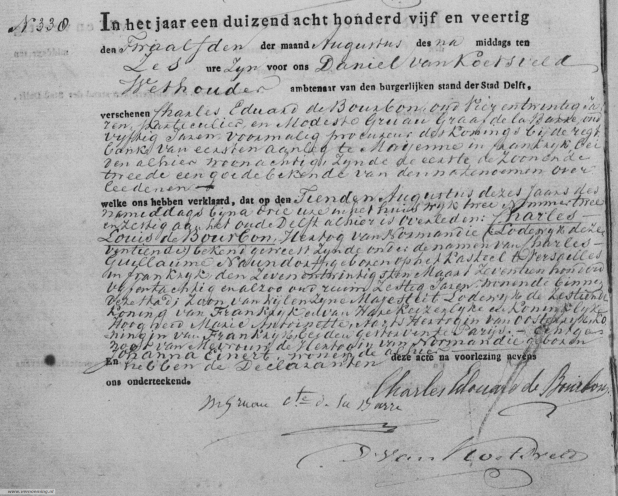 N 330
In het jaar een duizend acht honderd vijf en veertig
den Twaalfden der maand Augustus des na middags ten
Zes ure Zyn voor ons Daniel van Koetsveld
Wethouder ambtenaar van den burgerlijken stand der Stad Delft,
verschenen Charles Eduard de Bourbon, oud Vier en twintig Ja-
ren, Particulier, en Modeste Gruau Graaf de la Barre, oud
Vyftig Jaren Voormalig procureur des Konings bij de regt
banks van eersten aanleg te Mayenne in frankryk, bei
den alhier woonachtig zynde de eerste de Zoon en de
tweede een goede bekende van den na te noemen over
leedenen
welke ons hebben verklaard, dat op den Tienden Augustus dezes Jaars des
namiddags byna drie ure in het huis wyk twee nummer twee
en zestig aan het oude Delft alhier is overleden: Charles-
Louis de Bourbon, Hertog van Normandie (Lodewyk de Ze
ventiende) bekend geweest zynde onder de namen van Charles-
Guillaume Naundorff geboren op het Kasteel te Versailles
in Frankryk den Zeven en twintigsten Maart Zeventien honderd
vyf en tachtig en alzoo oud ruim Zestig Jaren, wonende binnen
deze stad; Zoon van wylen Zyne Majesteit Lodewyk de Zestiende
Koning van Frankryk en van Hare Keizerlyke en Koninklyke
Hoogheid Marie Antoinette Aarts Hertogin van Oostenryk Ko
ningin van Frankryk beiden gewezen te Parys. Echtge
noot van Mevrouw de Hertogin van Normandie geboren
Johanna Einert, wonende alhier
En hebben de Declaranten deze acte na voorlezing nevens
ons onderteekend.
Charles Edouard de Bourbon
M Gruau Cte de la Barre
D van Koetsveld